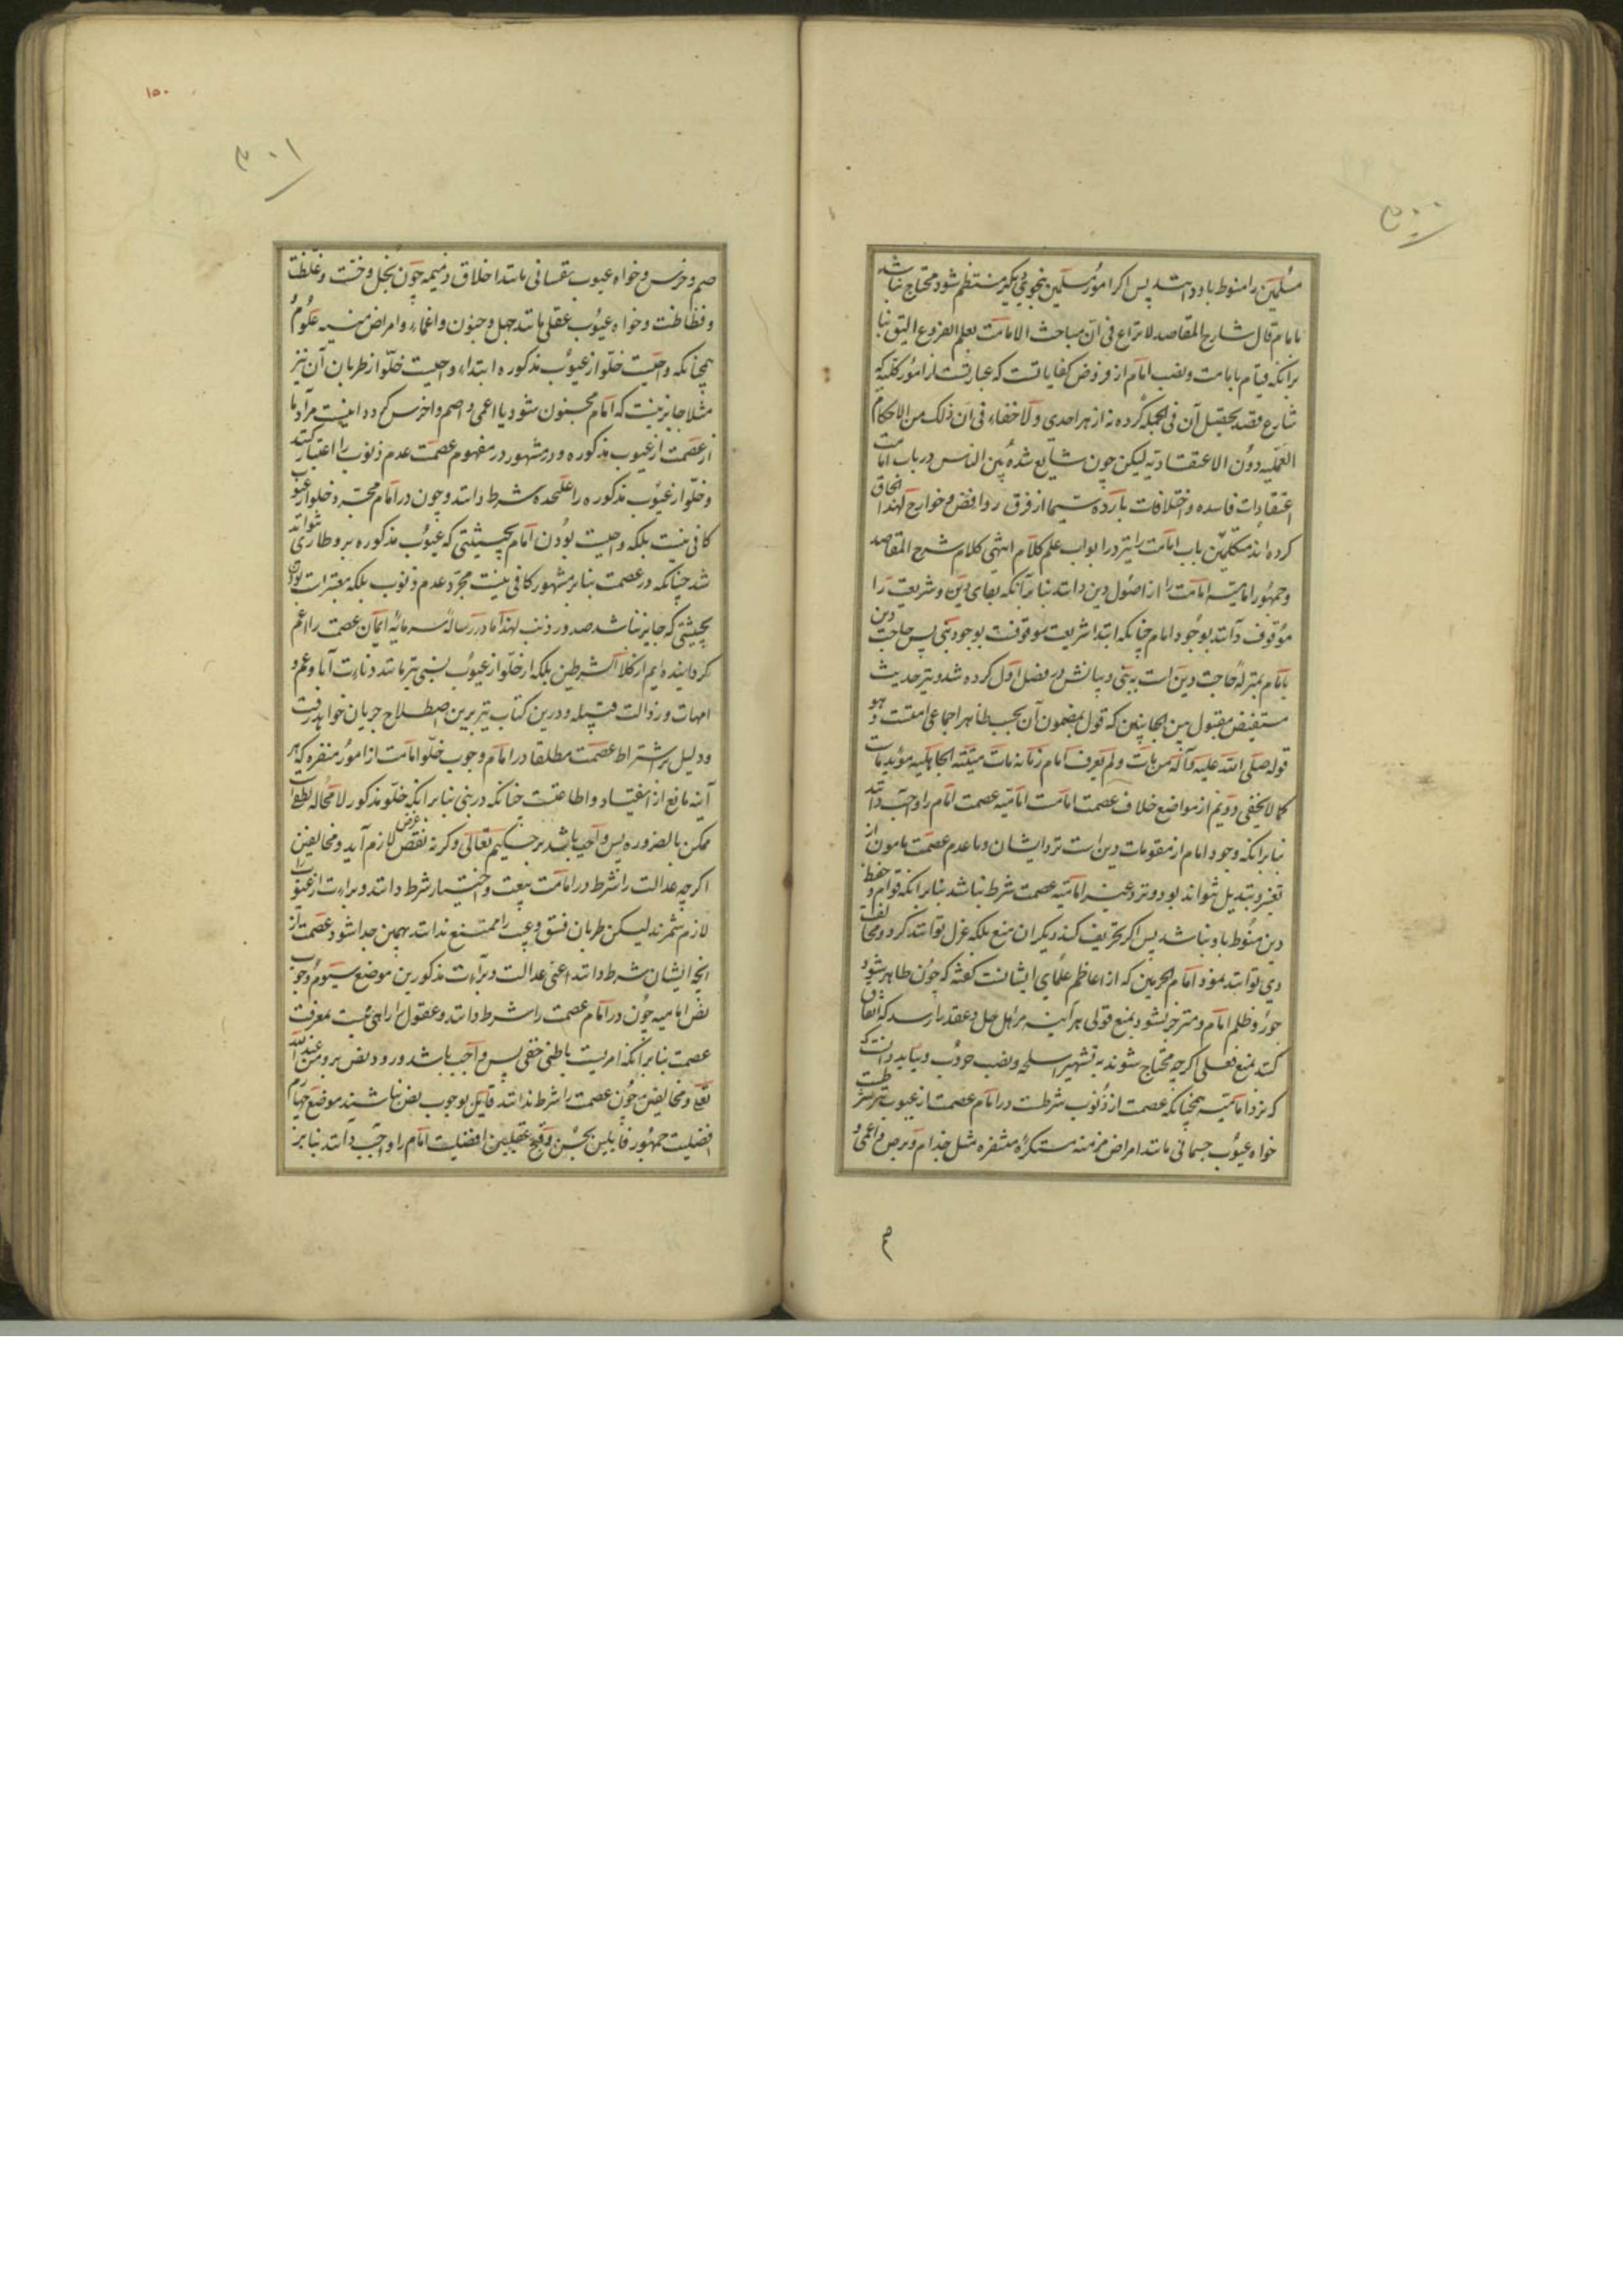 ۳۰۰
مسلمین را منوط باو داشته پس اگر امور مسلمین بنحوی دیگر منتظم شود محتاج نباشد
بامام قال شارح المقاصد لا نزاع فی ان مباحث الامامت بعلم الفروع الیق بنا
برانکه قیام بامامت و نصب امام از فروض کفایاتست که عبارتست از امور کلیه که
شارع قصد تحصیل آن فی الجمله کرده نه از هر احدی و لا خفاء فی ان ذلک من الاحکام
العملیه دون الاعتقادیه لیکن چون شایع شده بین الناس در باب امامت
اعتقادات فاسده و اختلافات بارده سیما از فرق روافض و خوارج لهذا الحاق
کرده اند متکلمین باب امامت را نیز در ابواب علم کلام انتهی کلام شرح المقاصد
و جمهور امامیه امامت را از اصول دین دانند بنا بر آنکه بقای دین و شریعت را
موقوف دانند بوجود امام چنانکه ابتدا شریعت موقوفست بوجود نبی پس حاجت دین
بامام بمنزله حاجت دین است به نبی و بیانش در فصل اول کرده شد و نیز حدیث
مستفیض مقبول بین الجانبین که قول بمضمون آن بحسب ظاهر اجماعی امتست و هو
قوله صلی الله علیه و آله من مات و لم یعرف امام زمانه مات میتته الجاهلیه موید
کما لا یخفی دویم از مواضع خلاف عصمت امامت امامیه عصمت امام را واجب دانند
بنا برانکه وجود امام از مقومات دین است نزد ایشان و با عدم عصمت مامون از
تغییر و تبدیل نتواند بود و نزد غیر امامیه عصمت شرط نباشد بنا برانکه قوام و حفظ
دین منوط باو نباشد پس اگر تحریف کند دیگران منع بلکه عزل توانند کرد و مخالفت
وی توانند نمود امام الحرمین که از اعاظم علمای ایشانست گفته که چون ظاهر شود
جور و ظلم امام و منزجر نشود بمنع قولی هر آینه مر اهل حل و عقد را رسد که اتفاق
کنند بمنع فعلی اگر چه محتاج شوند به تشهیر اسلحه و نصب حروب و بباید دانست که
که نزد امامیه همچنانکه عصمت از ذنوب شرطست در امام عصمت از عیوب نیز شرطست
خواه عیوب جسمانی مانند امراض مزمنه مستکرهٔ منفره مثل جذام و برص و اعمی و
صم
۱۵۰
۳۰۱
صم و خرس و خواه عیوب نفسانی مانند اخلاق ذمیمه چون بخل و خست و غلظت
و فظاظت و خواه عیوب عقلی مانند جهل و جنون و اغماء و امراض منسیه علوم و
همچنانکه واجبست خلو از عیوب مذکوره ابتداء واجبست خلو از طریان آن نیز
مثلا جایز نیست که امام مجنون شود یا اعمی و اصم و اخرس گردد اینست مراد ما
از عصمت از عیوب مذکوره و در مشهور در مفهوم عصمت عدم ذنوب را اعتبار کنند
و خلو از عیوب مذکوره را علحده شرط دانند و چون در امام مجرد خلو از عیوب
کافی نیست بلکه واجبست بودن امام بحیثیتی که عیوب مذکوره برو طاری نتواند
شد چنانکه در عصمت بنا بر مشهور کافی نیست مجرد عدم ذنوب بلکه معتبر است بودن
بحیثیتی که جایز نباشد صدور ذنب لهذا ما در رساله سرمایهٔ ایمان عصمت را اعم
گردانیده ایم از کلا الشرطین بلکه از خلو از عیوب نسبی نیز مانند دنائت آبا و عهر
امهات و رذالت قبیله و درین کتاب نیز برین اصطلاح جریان خواهد رفت
و دلیل بر اشتراط عصمت مطلقا در امام وجوب خلو امامت از امور منفره که هر
آینه مانع از انقیاد و اطاعتست چنانکه در نبی بنا برانکه خلو مذکور لا محاله لطف است
ممکن بالضروره پس واجب باشد بر حکیم تعالی و گر نه نقض غرض لازم آید و مخالفین
اگر چه عدالت را شرط در امامت بیعت و اختیار شرط دانند و براءت از عیوب را
لازم شمرند لیکن طریان فسق و عیب را ممتنع ندانند بهمین جدا شود عصمت از
آنچه ایشان شرط دانند اعنی عدالت و براءت مذکورین موضع سیوم وجوب
نص امامیه چون در امام عصمت را شرط دانند و عقول را راهی نیست بمعرفت
عصمت بنا برانکه امریست باطنی خفی پس واجب باشد ورود نص برو من عند الله
تعالی و مخالفین چون عصمت را شرط ندانند قایل بوجوب نص نباشند موضع چهارم
افضلیت جمهور قایلین بحسن و قبح عقلیین افضلیت امام را واجب دانند بنا بر